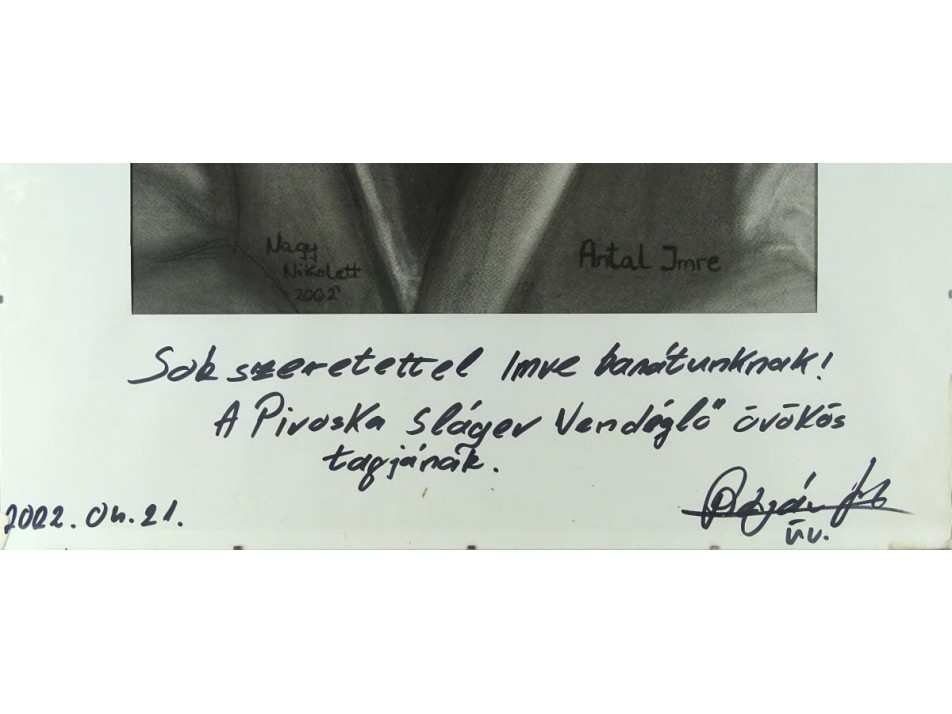 Nagy
Nikolett
2002
Antal Imre
Sok szeretettel Imre barátunknak!
A Piroska Sláger Vendéglő örökös
tagjának.
2002. 04. 21.
üv.